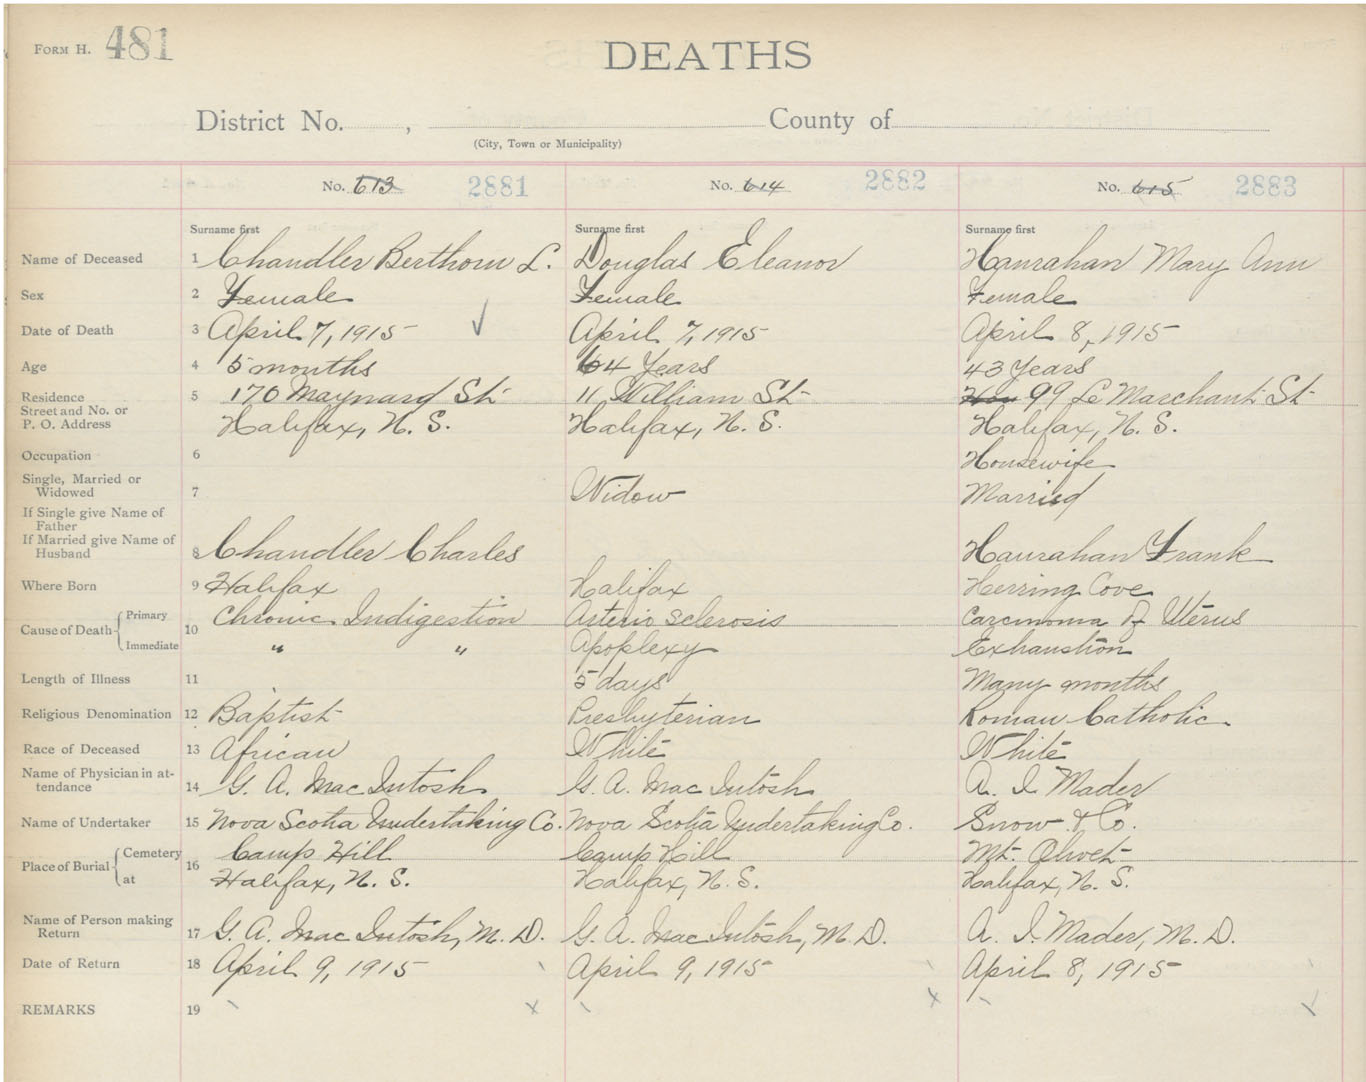 FORM H. 481
DEATHS
District No. , County of
(City, Town or Municipality)
No. 613 2881 No. 614 2882 No. 615 2883
Surname first Surname first Surname first
Name of Deceased 1 Chandler L. Douglas Eleanor Hanrahan Mary Ann
Sex 2 Female Female Female
Date of Death 3 April 7, 1915 April 7, 1915 April 8, 1915
Age 4 5 months 64 Years 43 Years
Residence 5 170 Maynard St. 11 William St. 99 Le Marchant St.
Street and No. or
P. O. Address Halifax, N. S. Halifax, N. S. Halifax, N. S.
Occupation 6 Housewife
Single, Married or
Widowed 7 Widow Married
If Single give Name of
Father
If Married give Name of
Husband 8 Chandler Charles Hanrahan Frank
Where Born 9 Halifax Halifax Herring Cove
Cause of Death Primary 10 Chronic Indigestion Arterio Sclerosis Carcinoma of Uterus
Immediate " " Apoplexy Exhaustion
Length of Illness 11 5 days Many months
Religious Denomination 12 Baptist Presbyterian Roman Catholic
Race of Deceased 13 African White White
Name of Physician in at-
tendance 14 G. A. MacIntosh G. A. MacIntosh A. I. Mader
Name of Undertaker 15 Nova Scotia Undertaking Co. Nova Scotia Undertaking Co. Snow & Co.
Place of Burial Cemetery 16 Camp Hill Camp Hill Mt. Olivet
at Halifax, N. S. Halifax, N. S. Halifax, N. S.
Name of Person making
Return 17 G. A. MacIntosh, M. D. G. A. MacIntosh, M. D. A. I. Mader, M. D.
Date of Return 18 April 9, 1915 April 9, 1915 April 8, 1915
REMARKS 19